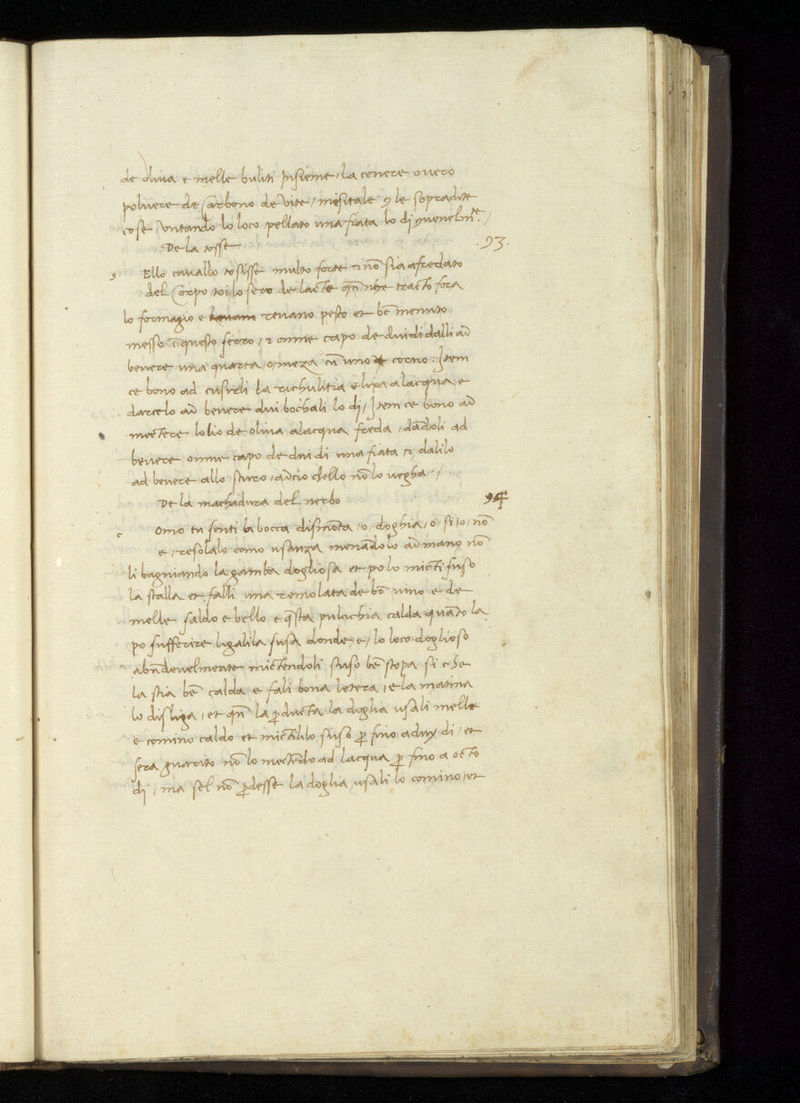 de oliua e melle buliti insieme, la cenere ouero
poluere de carbono de vite, misitale 9 le sopradite
cose, vntando lo loco pellato una fiata lo di
.93.
De la tosse
s Ello cauallo tosisse multo forte z nõ sia afredato
del corpo toilo sero de lacte qñ nhe tracto fora
lo formagio e reuano pesto et bẽ menuto
messo ĩ questo ferro, z omne capo de dui di dalli ad
benere una quarta, o, meza cũ uno corno: Item
ce bono ad la richulitia e lixa alacqua e
darcelo ad beuere dui bochali lo di, Item ce bono ad
mectere lolio de oliua alacqua freda, dãdoli ad
beuere omne capo de dui di una fiata z dalilo
ad beuere allo scuro, adcio chello nõ lo uegha,
De la machadura del nerbo
94
c Omo tu senti la bocca dismõta, o, doghia, o, si, o, nõ
e, resolalo como usanza menãdolo ad mano nõ
li bagniando la gamba dogliosa et po lo micti suso
la stalla et falli una remolata de bõ uino e de
melle saldo e bello e q̃sta pulichia calda quãto la
po sufferire ligalila susa donde e, lo loco doglioso
abũdeuelmente mictendoli suso bẽ stopa si che
la stia bẽ calda, e fali bona letera, e la matina
lo disliga, et qñ la p̱ducta la doglia usali melle
e comino caldo et mictililo suso p̱ fino aduy di, et
sera guarito nõ lo mectẽdo ad lacqua p̱ fino a octo
di, ma sel nõ p̱desse la doglia usali lo comino, et